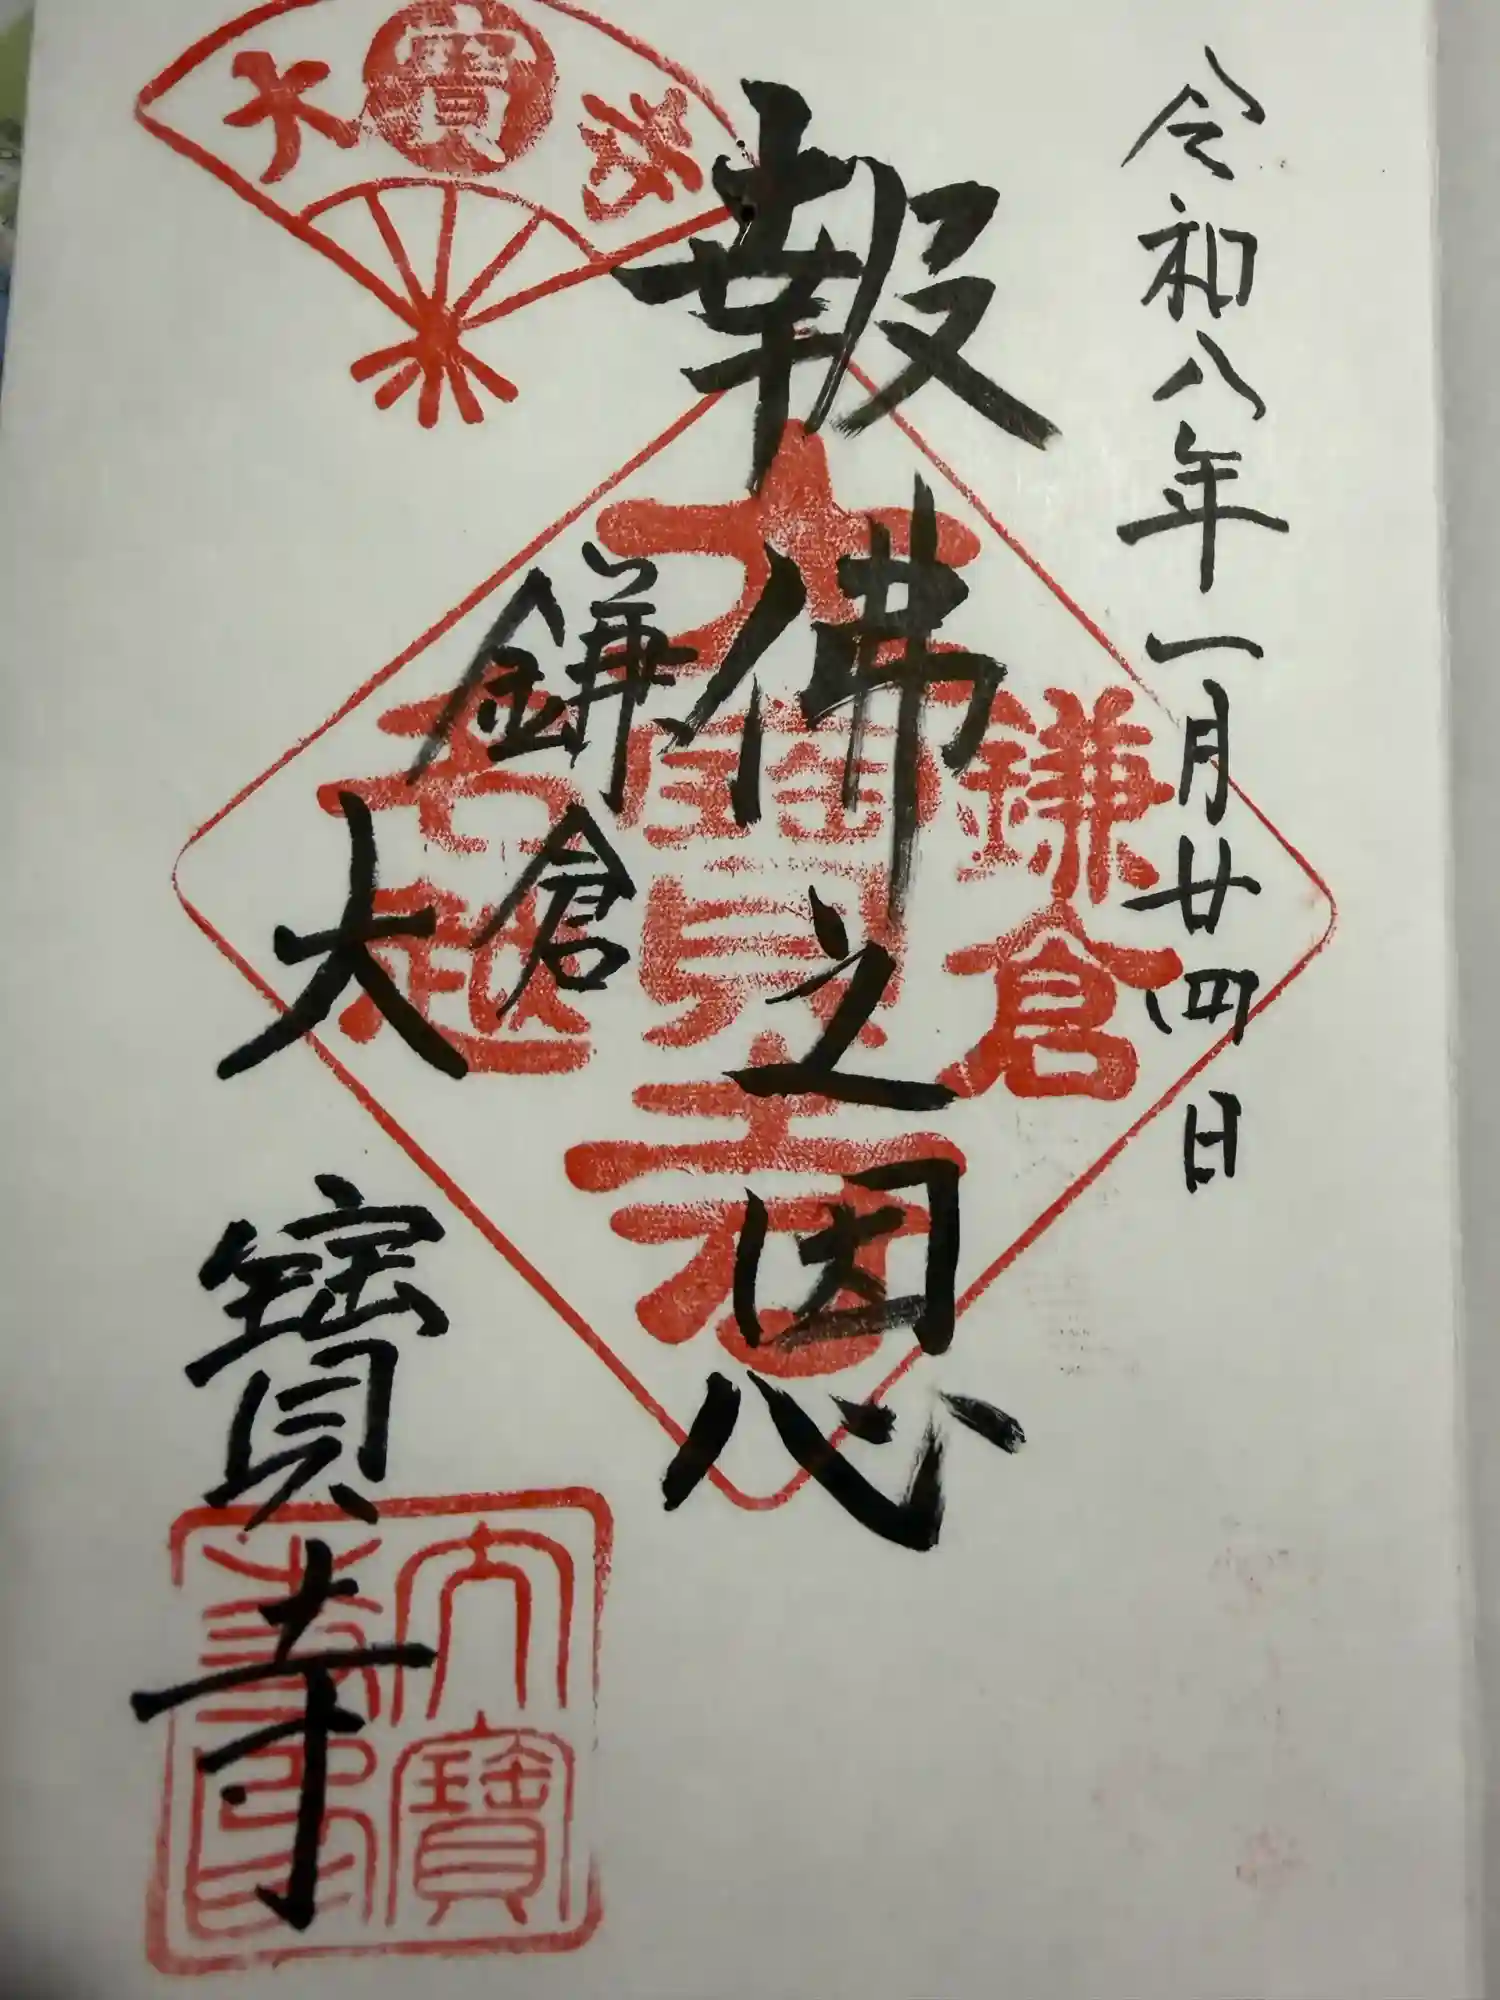 令和八年一月廿四日
報佛之恩
鎌倉
大寶寺
鎌倉
大寶寺
名越
大寶
寺印
寶
大